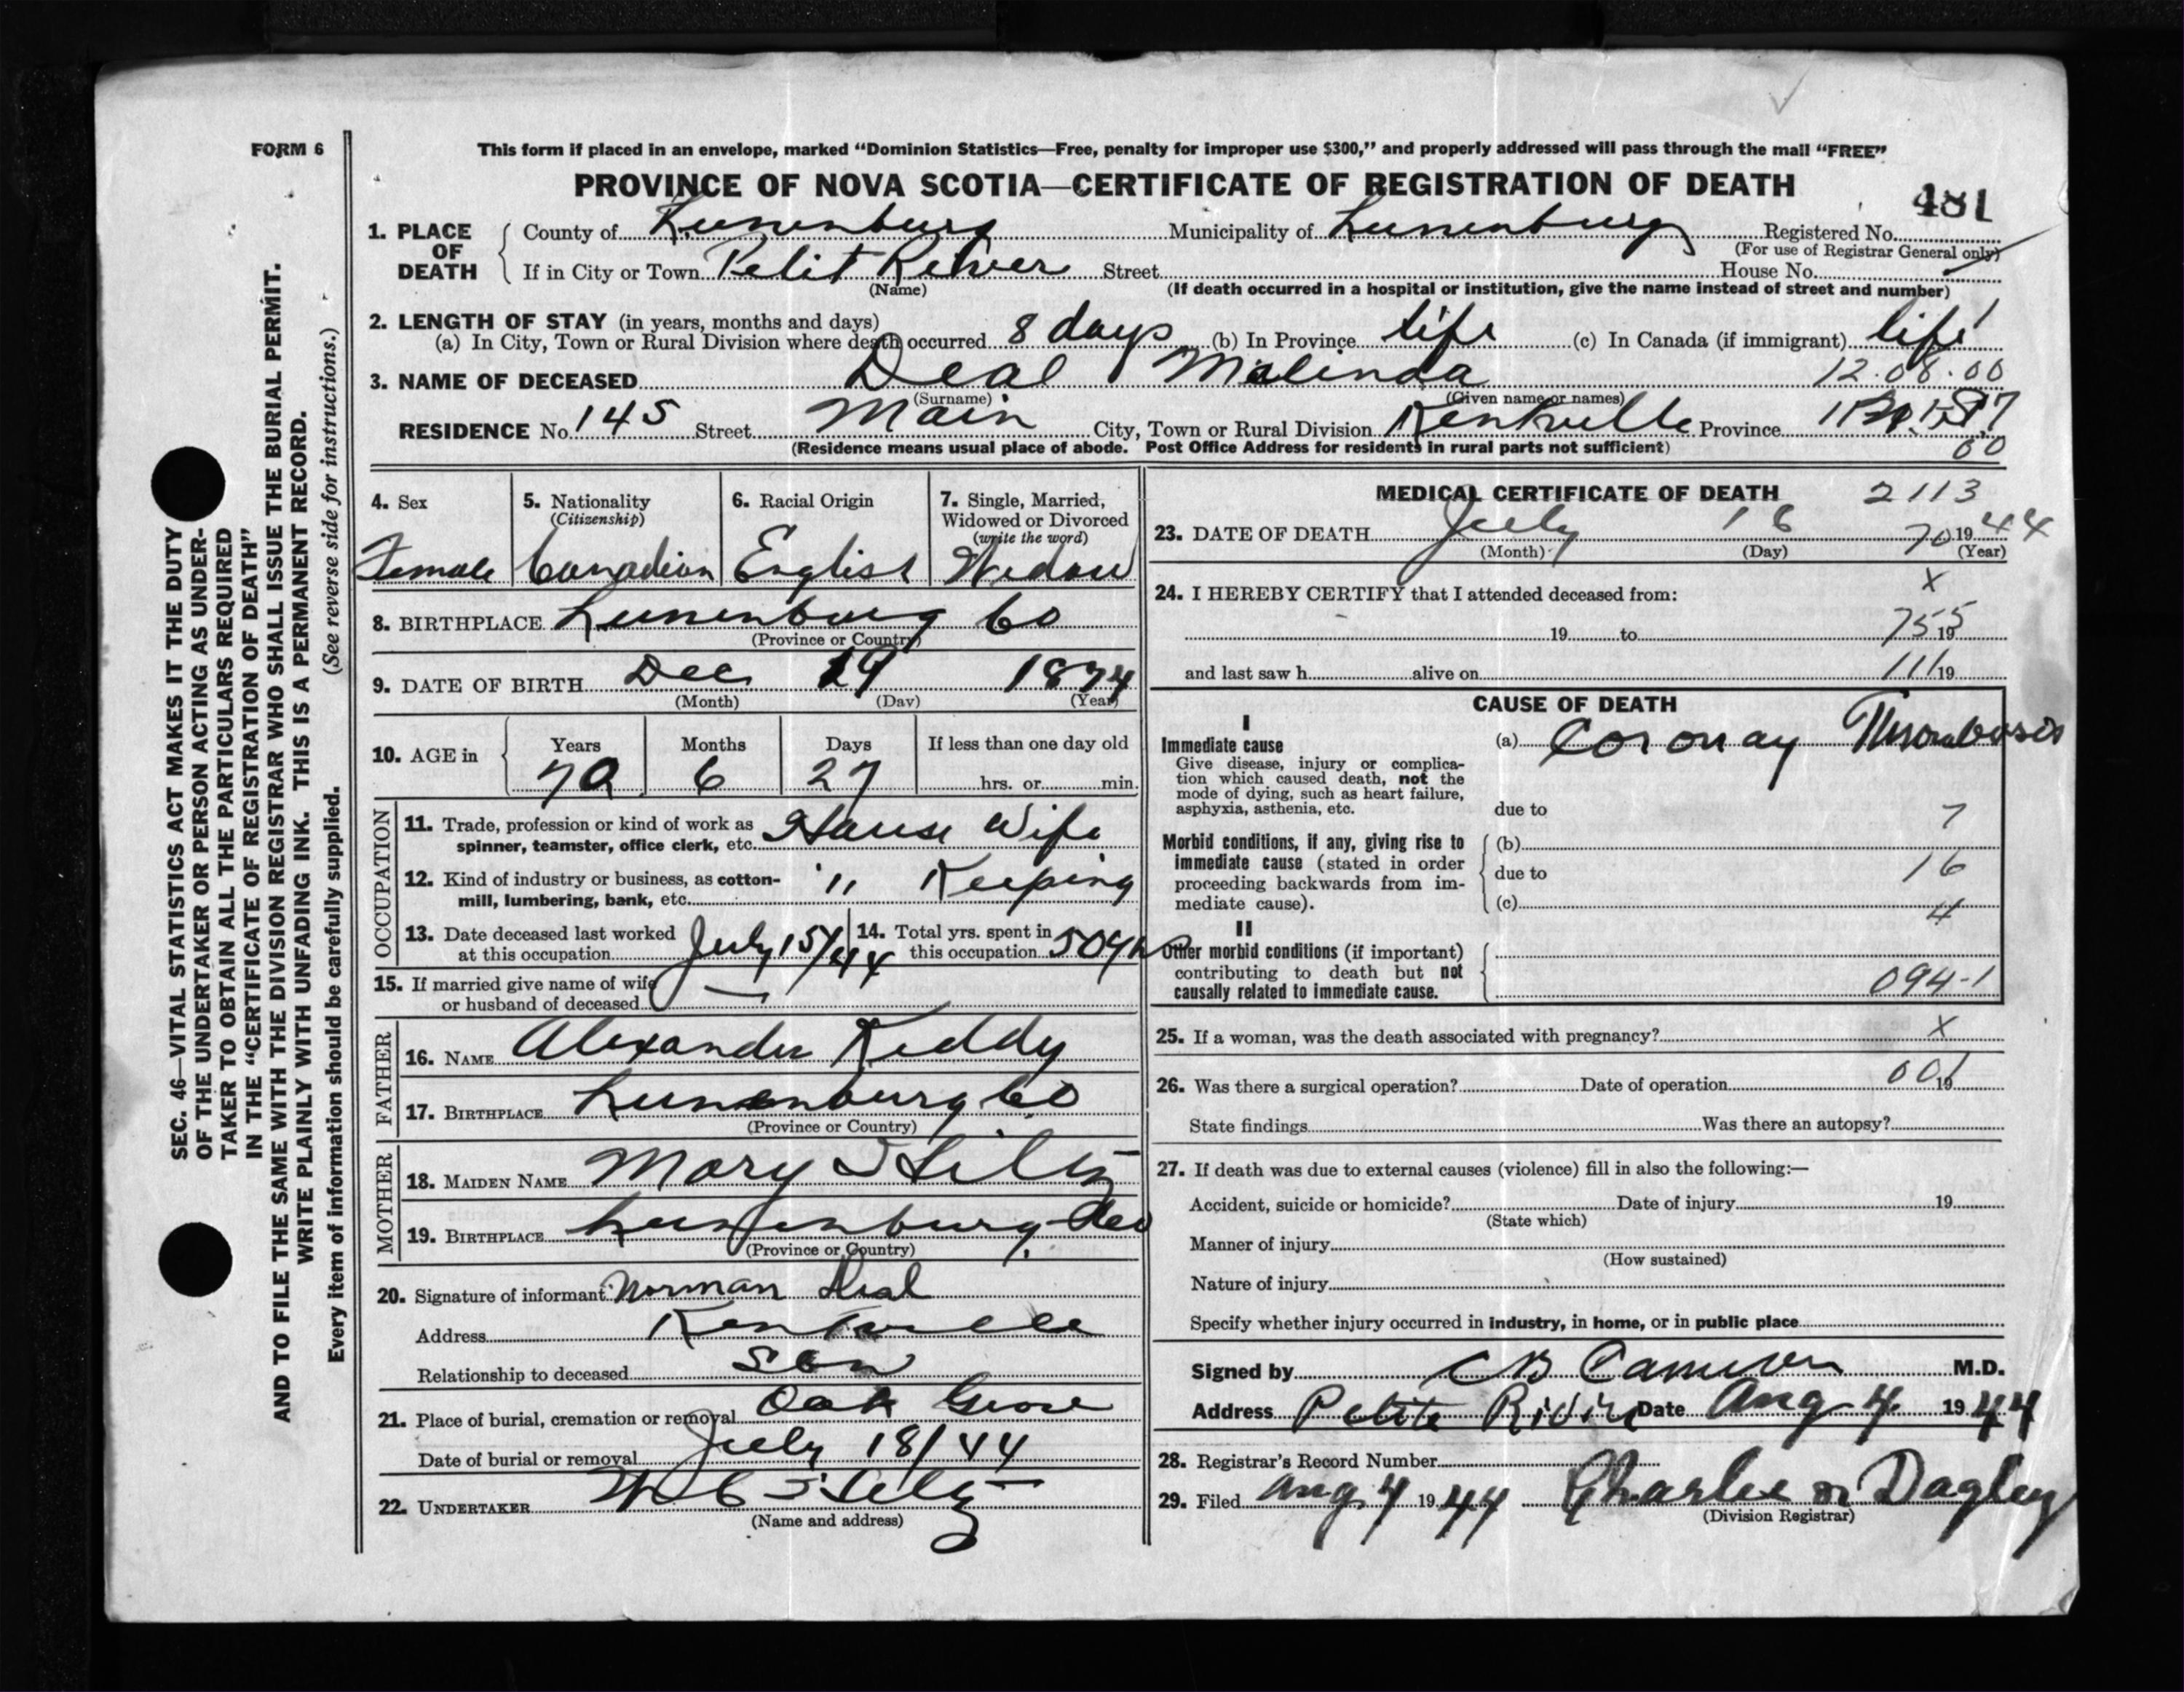 FORM 6
This form if placed in an envelope, marked “Dominion Statistics—Free, penalty for improper use $300,” and properly addressed will pass through the mail “FREE”
PROVINCE OF NOVA SCOTIA—CERTIFICATE OF REGISTRATION OF DEATH
481
1. PLACE OF DEATH County of Lunenburg Municipality of Lunenburg Registered No.
(For use of Registrar General only)
If in City or Town Petit Reiver Street House No.
(Name) (If death occurred in a hospital or institution, give the name instead of street and number)
2. LENGTH OF STAY (in years, months and days)
(a) In City, Town or Rural Division where death occurred 8 days (b) In Province life (c) In Canada (if immigrant) life
3. NAME OF DECEASED Deal Malinda 12.08.00
(Surname) (Given name or names)
RESIDENCE No. 145 Street Main City, Town or Rural Division Kentville Province
(Residence means usual place of abode. Post Office Address for residents in rural parts not sufficient) 00
4. Sex 5. Nationality (Citizenship) 6. Racial Origin 7. Single, Married, Widowed or Divorced (write the word)
Female Canadian English Widow
8. BIRTHPLACE Lunenburg Co
(Province or Country)
9. DATE OF BIRTH Dec 19 1874
(Month) (Day) (Year)
10. AGE in Years Months Days If less than one day old
70 6 27 hrs. or min.
OCCUPATION
11. Trade, profession or kind of work as spinner, teamster, office clerk, etc. House Wife
12. Kind of industry or business, as cotton-mill, lumbering, bank, etc. " Keeping
13. Date deceased last worked at this occupation July 15/44
14. Total yrs. spent in this occupation 50 yr
15. If married give name of wife or husband of deceased —
FATHER
16. NAME Alexander Keddy
17. BIRTHPLACE Lunenburg Co
(Province or Country)
MOTHER
18. MAIDEN NAME Mary Hiltz
19. BIRTHPLACE Lunenburg Co
(Province or Country)
20. Signature of informant Norman Deal
Address Kentville
Relationship to deceased Son
21. Place of burial, cremation or removal Oak Grove
Date of burial or removal July 18/44
22. UNDERTAKER W C Hiltz
(Name and address)
MEDICAL CERTIFICATE OF DEATH 2113
23. DATE OF DEATH July 16 70 1944
(Month) (Day) (Year)
X
24. I HEREBY CERTIFY that I attended deceased from:
19 to 755 19
and last saw h alive on 111 19
CAUSE OF DEATH
I
Immediate cause (a) Coronay Thrombosis
Give disease, injury or complica-
tion which caused death, not the
mode of dying, such as heart failure,
asphyxia, asthenia, etc. due to
7
Morbid conditions, if any, giving rise to (b)
immediate cause (stated in order due to 16
proceeding backwards from im-
mediate cause). (c) 4
II
Other morbid conditions (if important)
contributing to death but not
causally related to immediate cause. 094-1
25. If a woman, was the death associated with pregnancy? X
26. Was there a surgical operation? Date of operation 001 19
State findings Was there an autopsy?
27. If death was due to external causes (violence) fill in also the following:—
Accident, suicide or homicide? Date of injury 19
(State which)
Manner of injury
(How sustained)
Nature of injury
Specify whether injury occurred in industry, in home, or in public place
Signed by CB Cameron M.D.
Address Petite Rivire Date Aug 4 1944
28. Registrar's Record Number
29. Filed Aug 4 1944 Charlie M Dagley
(Division Registrar)
SEC. 46—VITAL STATISTICS ACT MAKES IT THE DUTY
OF THE UNDERTAKER OR PERSON ACTING AS UNDER-
TAKER TO OBTAIN ALL THE PARTICULARS REQUIRED
IN THE “CERTIFICATE OF REGISTRATION OF DEATH”
AND TO FILE THE SAME WITH THE DIVISION REGISTRAR WHO SHALL ISSUE THE BURIAL PERMIT.
WRITE PLAINLY WITH UNFADING INK. THIS IS A PERMANENT RECORD.
Every item of information should be carefully supplied. (See reverse side for instructions.)